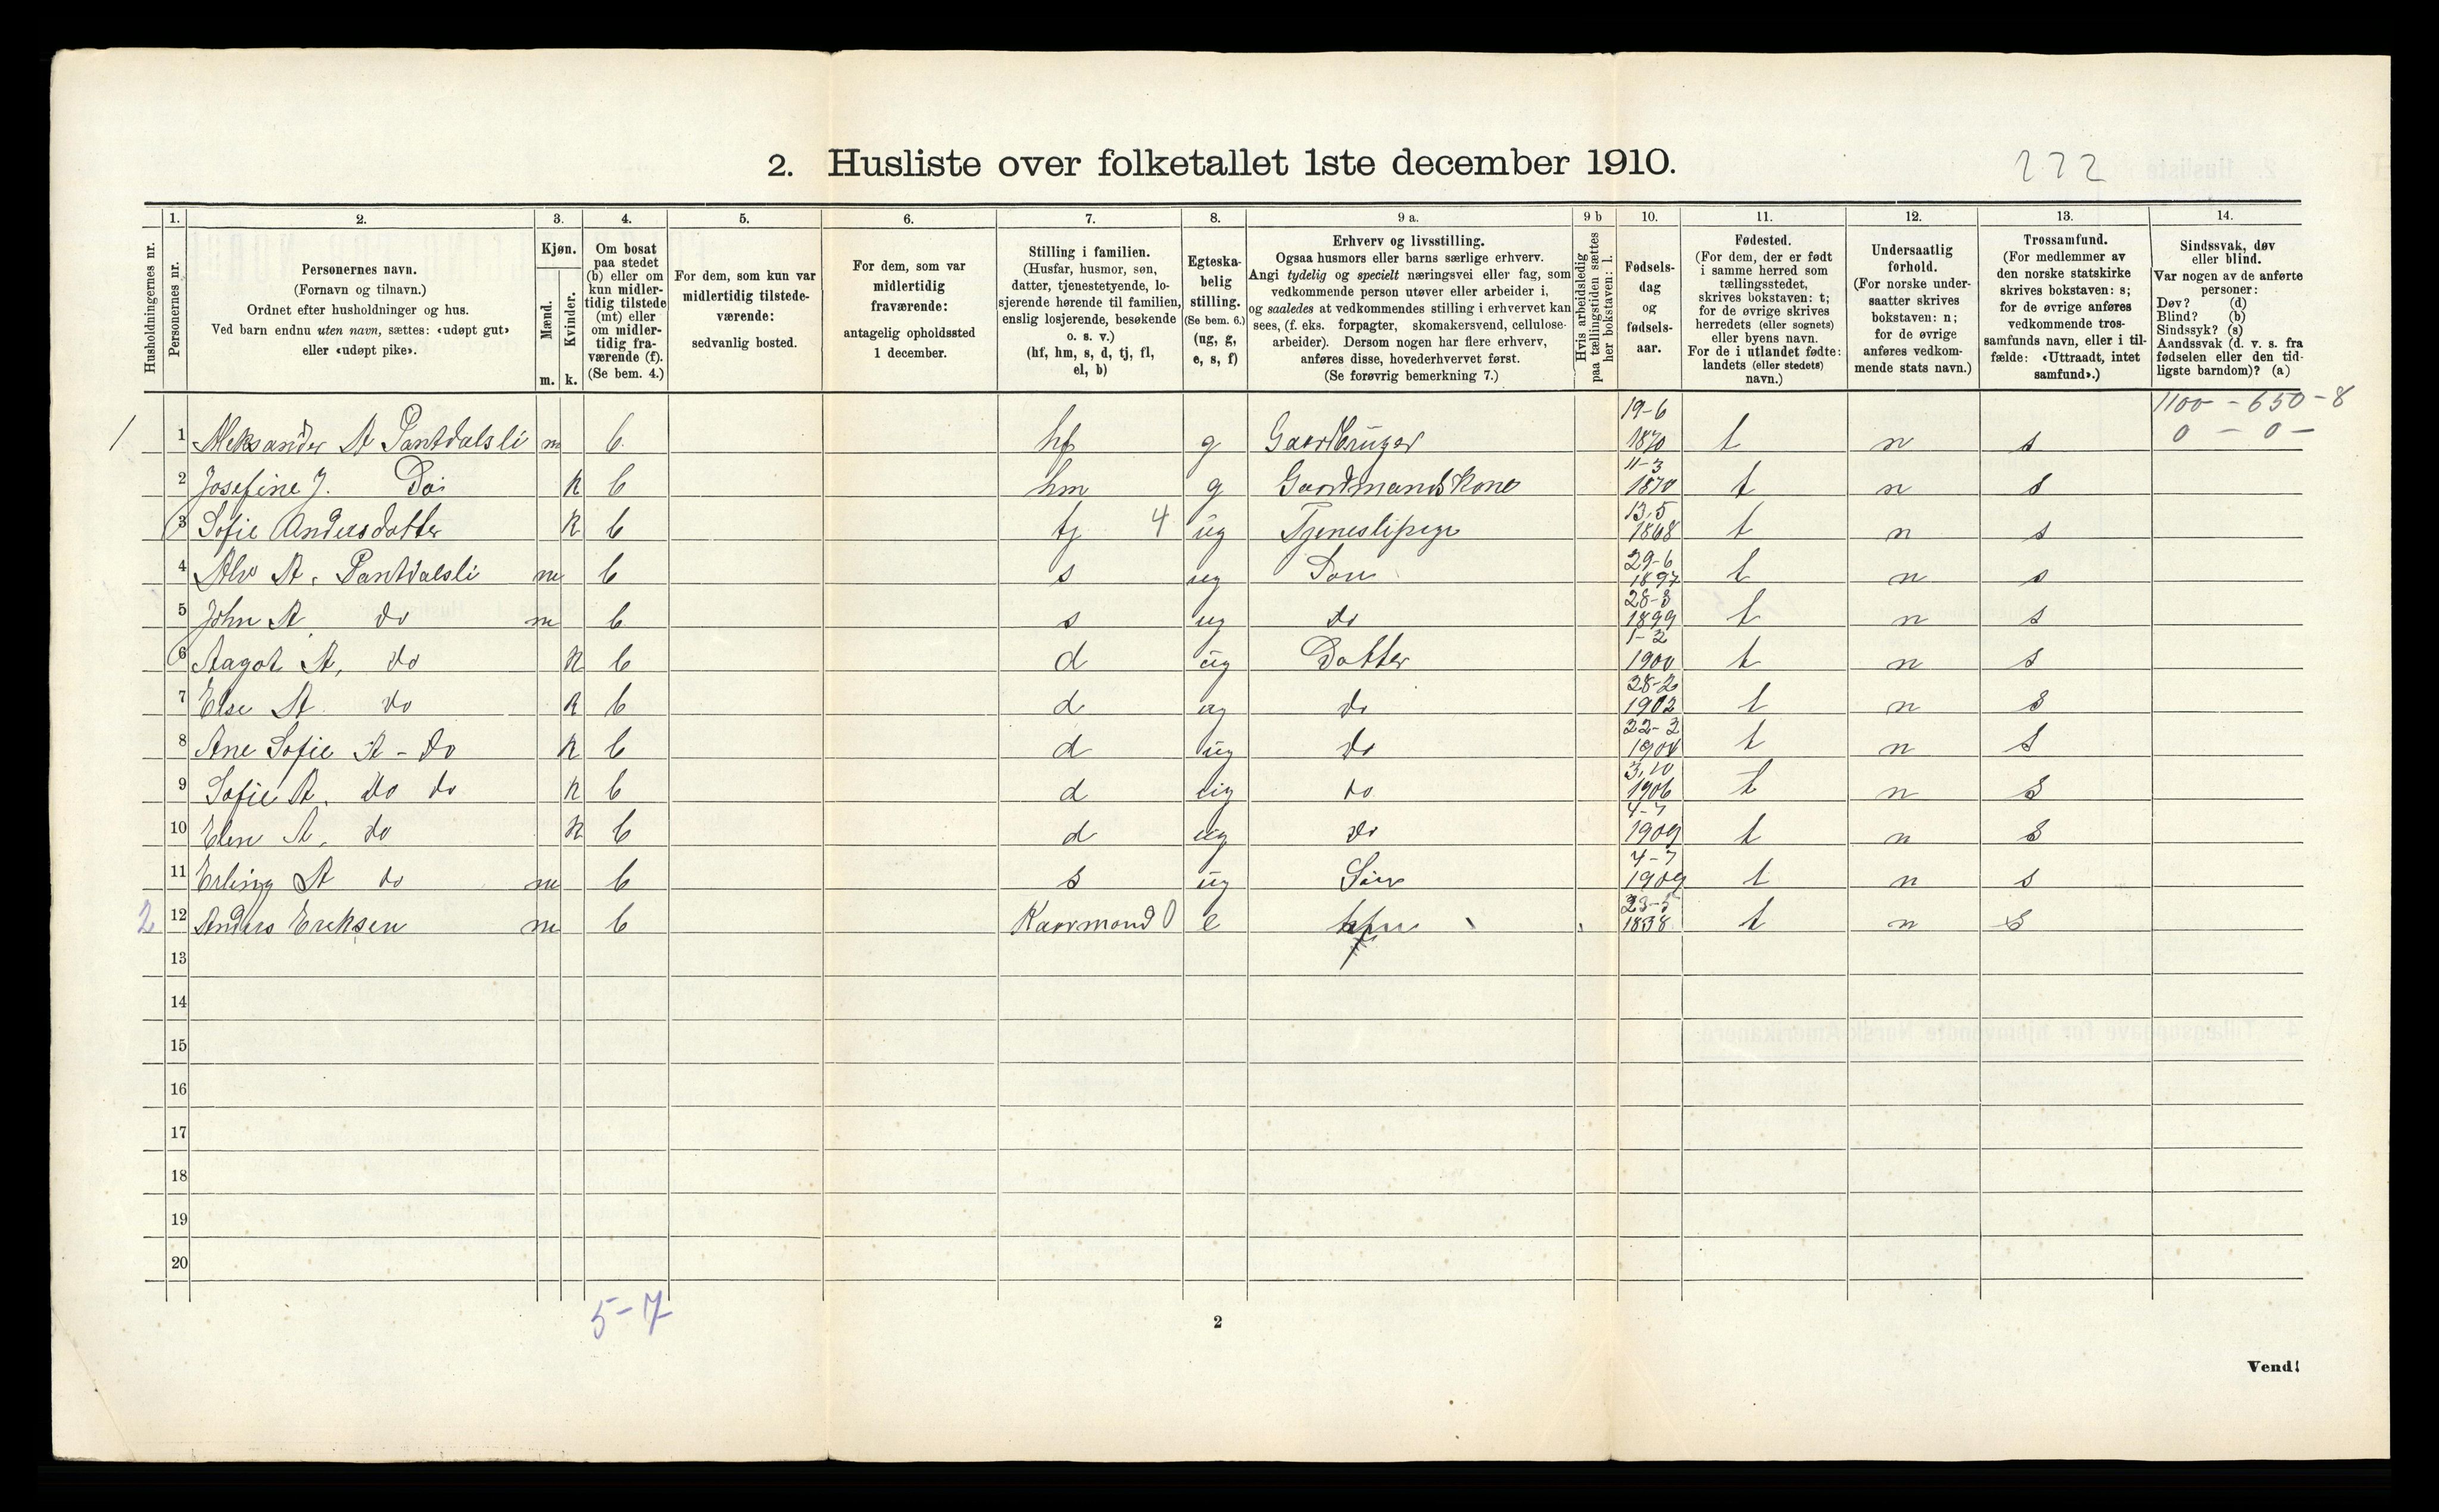 2. Husliste over folketallet 1ste december 1910.
222
1. 2. 3. 4. 5. 6. 7. 8. 9 a. 9 b 10. 11. 12. 13. 14.
Husholdningernes nr.
Personernes nr.
Personernes navn.
(Fornavn og tilnavn.)
Ordnet efter husholdninger og hus.
Ved barn endnu uten navn, sættes: «udøpt gut»
eller «udøpt pike».
Kjøn.
Mænd.
Kvinder.
m. k.
Om bosat
paa stedet
(b) eller om
kun midler-
tidig tilstede
(mt) eller
om midler-
tidig fra-
værende (f).
(Se bem. 4.)
For dem, som kun var
midlertidig tilstede-
værende:
sedvanlig bosted.
For dem, som var
midlertidig
fraværende:
antagelig opholdssted
1 december.
Stilling i familien.
(Husfar, husmor, søn,
datter, tjenestetyende, lo-
sjerende hørende til familien,
enslig losjerende, besøkende
o. s. v.)
(hf, hm, s, d, tj, fl,
el, b)
Egteska-
belig
stilling.
(Se bem. 6.)
(ug, g,
e, s, f)
Erhverv og livsstilling.
Ogsaa husmors eller barns særlige erhverv.
Angi tydelig og specielt næringsvei eller fag, som
vedkommende person utøver eller arbeider i,
og saaledes at vedkommendes stilling i erhvervet kan
sees, (f. eks. forpagter, skomakersvend, cellulose-
arbeider). Dersom nogen har flere erhverv,
anføres disse, hovederhvervet først.
(Se forøvrig bemerkning 7.)
Hvis arbeidsledig
paa tællingstiden sættes
her bokstaven: l.
Fødsels-
dag
og
fødsels-
aar.
Fødested.
(For dem, der er født
i samme herred som
tællingsstedet,
skrives bokstaven: t;
for de øvrige skrives
herredets (eller sognets)
eller byens navn.
For de i utlandet fødte:
landets (eller stedets)
navn.)
Undersaatlig
forhold.
(For norske under-
saatter skrives
bokstaven: n;
for de øvrige
anføres vedkom-
mende stats navn.)
Trossamfund.
(For medlemmer av
den norske statskirke
skrives bokstaven: s;
for de øvrige anføres
vedkommende tros-
samfunds navn, eller i til-
fælde: «Uttraadt, intet
samfund».)
Sindssvak, døv
eller blind.
Var nogen av de anførte
personer:
Døv? (d)
Blind? (b)
Sindssyk? (s)
Aandssvak (d. v. s. fra
fødselen eller den tid-
ligste barndom)? (a)
1100 - 650 - 8
0 - 0 -
1 1 Aleksander A Pantdalsli m b hf g Gaardbruger 19-6 1870 t n s
2 Josefine J. Do k b hm g Gaardmandskone 11-3 1870 t n s
3 Sofie Andersdatter k b tj 4 ug Tjenestepige 13,5 1868 t n s
4 Alv A. Pantdalsli m b s ug Søn 29-6 1897 t n s
5 John A. do m b s ug do 28-8 1899 t n s
6 Aagot A, do k b d ug Datter 1-2 1900 t n s
7 Else A. do k b d ug do 28-2 1902 t n s
8 Ane Sofie A - do k b d ug do 22-3 1904 t n s
9 Sofie A. do do k b d ug do 3,10 1906 t n s
10 Elen A, do k b d ug do 4-7 1909 t n s
11 Erling A do m b s ug Søn 4-7 1909 t n s
2 12 Anders Eriksen m b Kaarmand 0 e 23-5 1838 t n s
13
14
15
16
17
18
19
20
5-7
2
Vend!